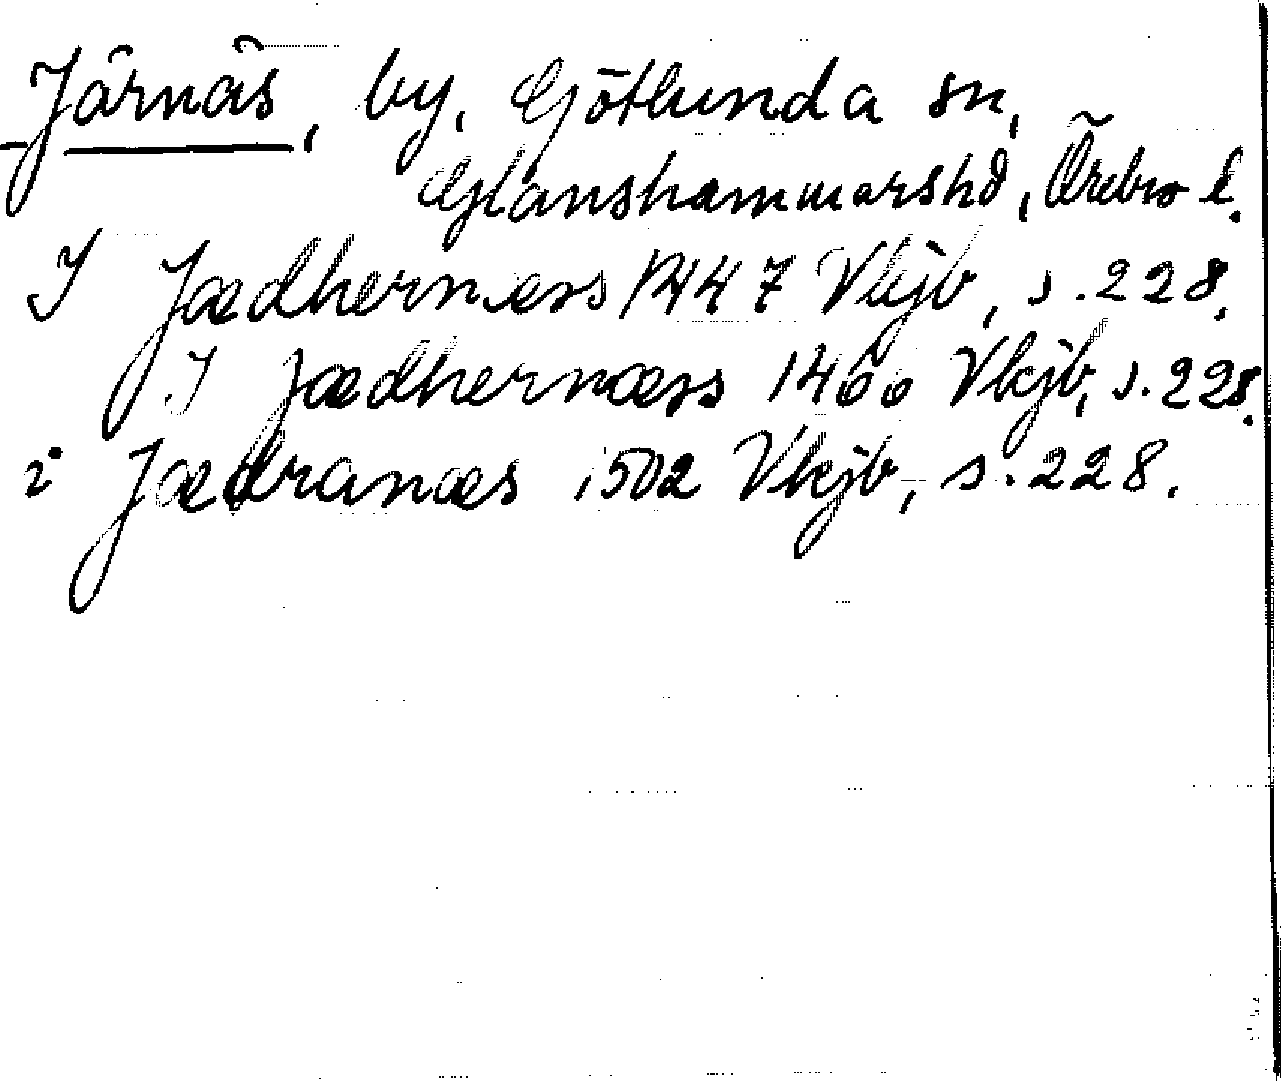 Järnäs, by, Götlunda sn,
Glanshammars hd, Örebro l.
I Jædhernæss 1447 Vkjb, s. 228.
I Jædhernæss 1460 Vkjb, s. 228.
i Jædranæs 1502 Vkjb, s. 228.